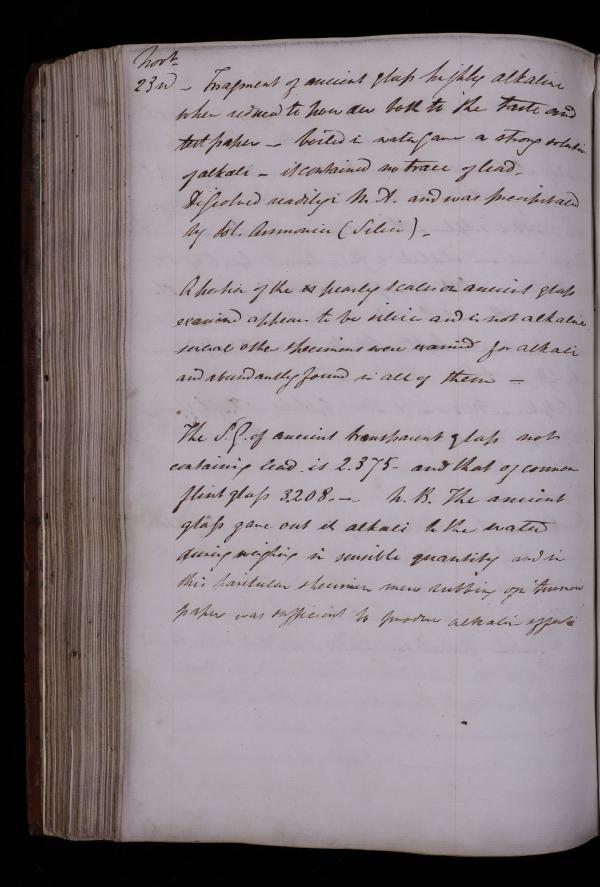 Novr
23rd - Fragment of ancient glass highly alkaline
when reduced to powder both to the taste and
test paper - boiled in water gave a strong solution
of alkali - it contained no trace of lead.
Dissolved readily in M. A. and was precipitated
by sol. Ammonia (Silica) -
A portion of the pearly scales on ancient glass
examined appears to be silica and is not alkaline
several other specimens were examined for alkali
and abundantly found in all of them -
The S.G. of ancient transparent glass not
containing lead is 2.375 - and that of common
flint glass 3208. - N. B. The ancient
glass gave out it alkali to the water
during weighing in sensible quantity and in
this particular specimen mere rubbing on turmeric
paper was sufficient to produce alkaline effects